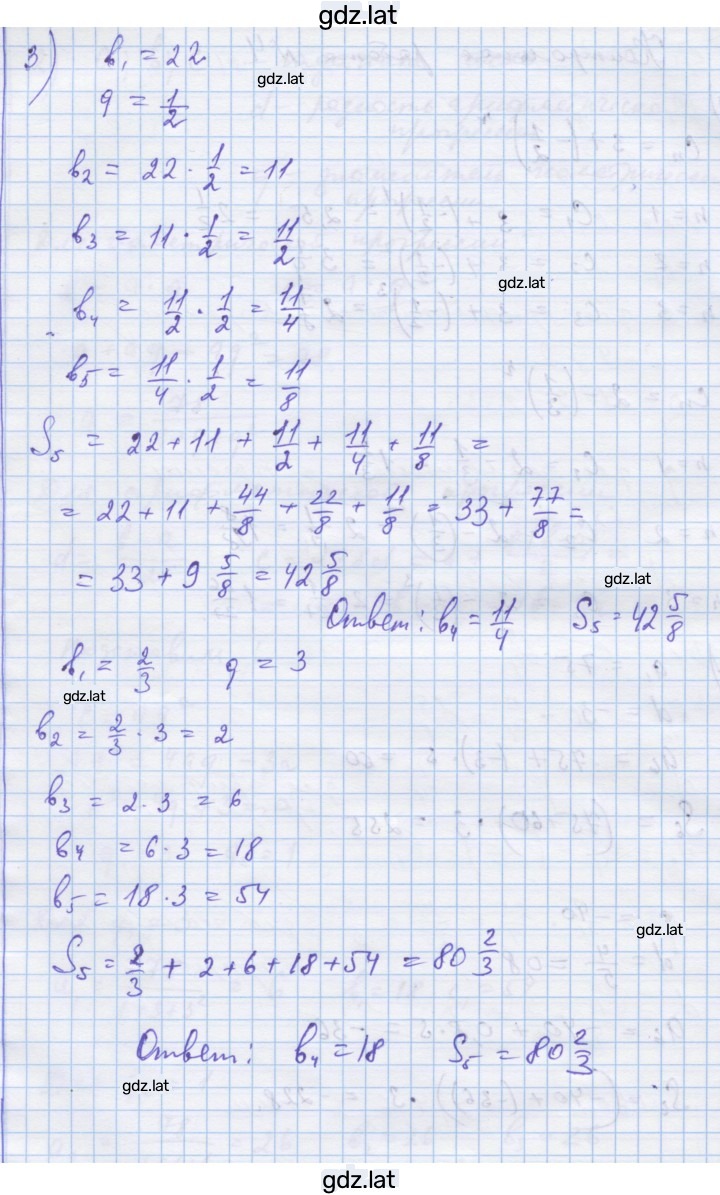 gdz.lat
3) b₁ = 22
gdz.lat
q = 1/2
b₂ = 22 · 1/2 = 11
b₃ = 11 · 1/2 = 11/2
gdz.lat
b₄ = 11/2 · 1/2 = 11/4
b₅ = 11/4 · 1/2 = 11/8
S₅ = 22 + 11 + 11/2 + 11/4 + 11/8 =
= 22 + 11 + 44/8 + 22/8 + 11/8 = 33 + 77/8 =
= 33 + 9 5/8 = 42 5/8
gdz.lat
Ответ: b₄ = 11/4 S₅ = 42 5/8
b₁ = 2/3 q = 3
gdz.lat
b₂ = 2/3 · 3 = 2
b₃ = 2 · 3 = 6
b₄ = 6 · 3 = 18
b₅ = 18 · 3 = 54
gdz.lat
S₅ = 2/3 + 2 + 6 + 18 + 54 = 80 2/3
Ответ: b₄ = 18 S₅ = 80 2/3
gdz.lat
gdz.lat